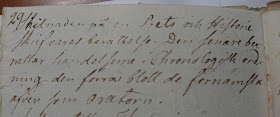 29/ Skilnaden på en Poets och Historie
skrifvares berättelse. Den senare be-
rättar händelserne i Chronologisk ord-
ning den förra blott de förnämsta
äfven som oratorn.